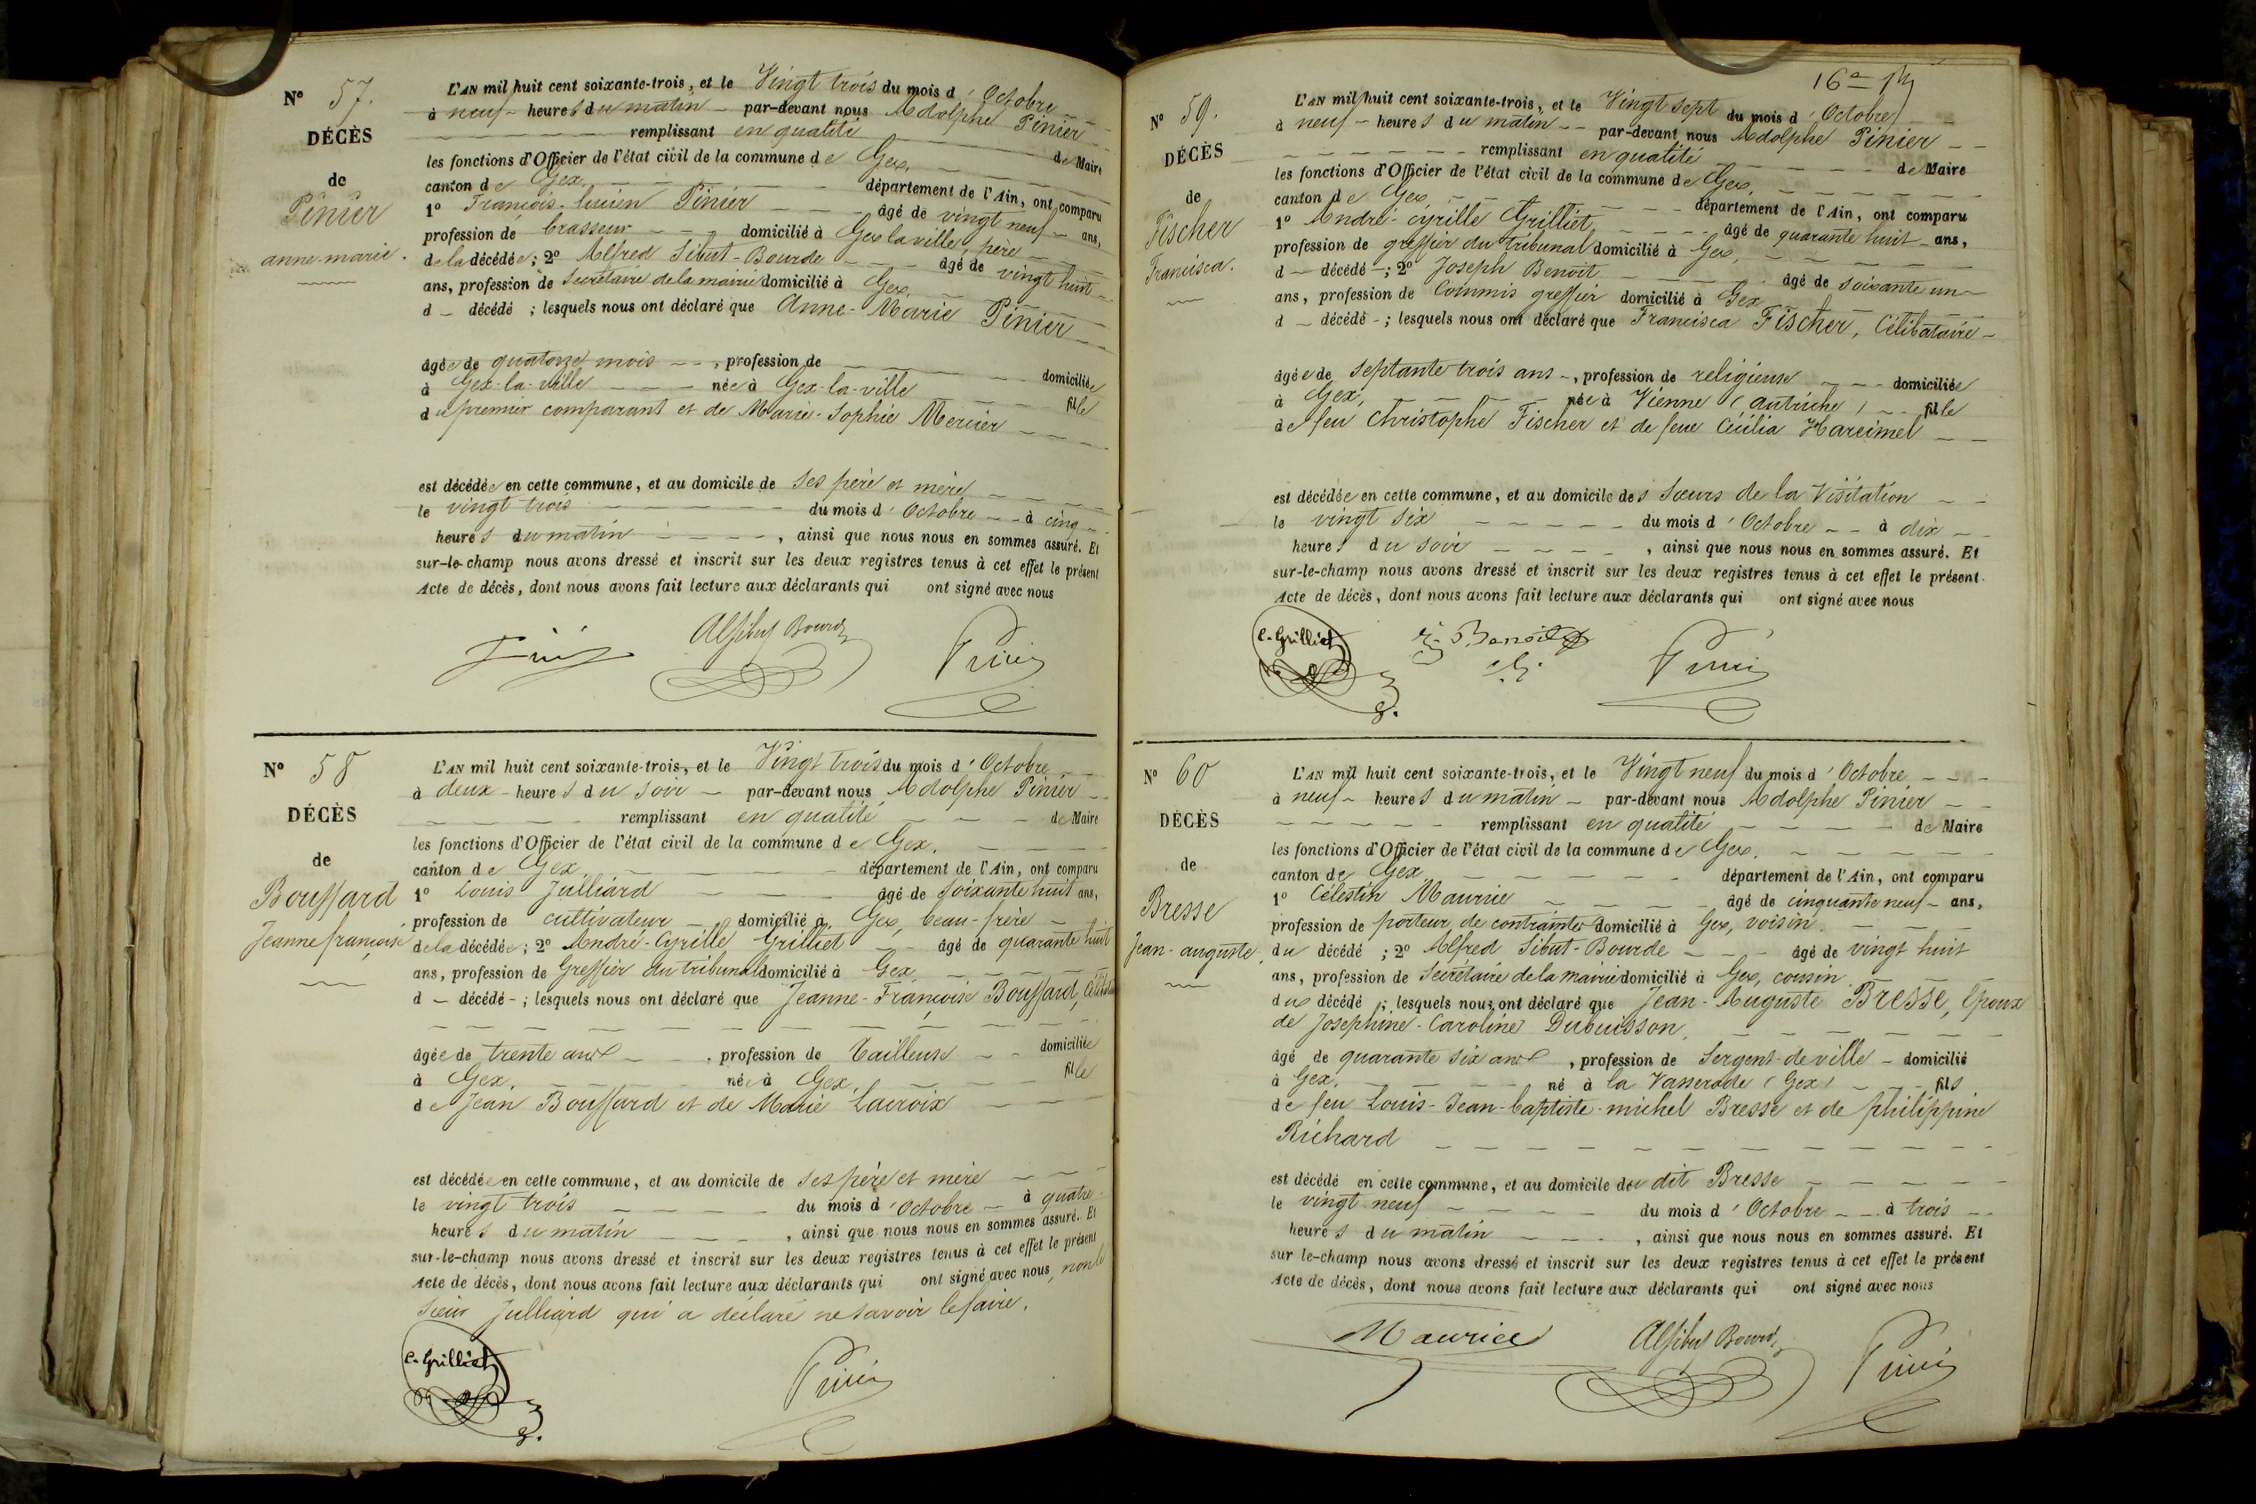 N° 57.
DÉCÈS
de
Pinier
anne-marie.
L'AN mil huit cent soixante-trois, et le Vingt trois du mois d'Octobre
à neuf heures du matin par-devant nous Adolphe Pinier
remplissant en qualité de Maire
les fonctions d'Officier de l'état civil de la commune de Gex,
canton de Gex département de l'Ain, ont comparu
1° François-Lucien Pinier âgé de vingt neuf ans,
profession de brasseur domicilié à Gex la ville père
de la décédée; 2° Alfred Sibut-Bourde âgé de vingt huit
ans, profession de Secrétaire de la mairie domicilié à Gex
d décédé; lesquels nous ont déclaré que Anne-Marie Pinier
âgée de quatorze mois, profession de domiciliée
à Gex-la-ville née à Gex-la-ville fille
du premier comparant et de Marie-Sophie Mercier
est décédée en cette commune, et au domicile de ses père et mère
le vingt trois du mois d'Octobre à cinq
heures du matin, ainsi que nous nous en sommes assuré. Et
sur-le-champ nous avons dressé et inscrit sur les deux registres tenus à cet effet le présent
Acte de décès, dont nous avons fait lecture aux déclarants qui ont signé avec nous
Alf Sibut Bourde
Pinier
N° 58
DÉCÈS
de
Bouffard
Jeanne françoise
L'AN mil huit cent soixante-trois, et le Vingt trois du mois d'Octobre
à deux heures du soir par-devant nous Adolphe Pinier
remplissant en qualité de Maire
les fonctions d'Officier de l'état civil de la commune de Gex.
canton de Gex département de l'Ain, ont comparu
1° Louis Julliard âgé de soixante huit ans,
profession de cultivateur domicilié à Gex, beau-frère
de la décédée; 2° André-Cyrille Grilliet âgé de quarante huit
ans, profession de Greffier du tribunal domicilié à Gex
d décédé; lesquels nous ont déclaré que Jeanne-Françoise Bouffard,
âgée de trente ans, profession de Tailleuse domiciliée
à Gex. née à Gex. fille
de Jean Bouffard et de Marie Lacroix
est décédée en cette commune, et au domicile de ses père et mère
le vingt trois du mois d'Octobre à quatre
heures du matin, ainsi que nous nous en sommes assuré. Et
sur-le-champ nous avons dressé et inscrit sur les deux registres tenus à cet effet le présent
Acte de décès, dont nous avons fait lecture aux déclarants qui ont signé avec nous, non le
sieur Julliard qui a déclaré ne savoir le faire.
C. Grilliet
Pinier
16e
N° 59.
DÉCÈS
de
Fischer
Francisca.
L'AN mil huit cent soixante-trois, et le Vingt sept du mois d'Octobre
à neuf heures du matin par-devant nous Adolphe Pinier
remplissant en qualité de Maire
les fonctions d'Officier de l'état civil de la commune de Gex,
canton de Gex département de l'Ain, ont comparu
1° André-Cyrille Grilliet, âgé de quarante huit ans,
profession de greffier du tribunal domicilié à Gex,
d décédé; 2° Joseph Benoit âgé de soixante un
ans, profession de Commis greffier domicilié à Gex
d décédé; lesquels nous ont déclaré que Francisca Fischer, Célibataire
âgée de septante trois ans, profession de religieuse domiciliée
à Gex, née à Vienne (autriche) fille
de feu Christophe Fischer et de feue Cécilia Hareimel
est décédée en cette commune, et au domicile des Sœurs de la Visitation
le vingt six du mois d'Octobre à dix
heures du soir, ainsi que nous nous en sommes assuré. Et
sur-le-champ nous avons dressé et inscrit sur les deux registres tenus à cet effet le présent
Acte de décès, dont nous avons fait lecture aux déclarants qui ont signé avec nous
C. Grilliet
Benoit
Pinier
N° 60
DÉCÈS
de
Bresse
Jean-auguste.
L'AN mil huit cent soixante-trois, et le Vingt neuf du mois d'Octobre
à neuf heures du matin par-devant nous Adolphe Pinier
remplissant en qualité de Maire
les fonctions d'Officier de l'état civil de la commune de Gex.
canton de Gex département de l'Ain, ont comparu
1° Célestin Maurice âgé de cinquante neuf ans,
profession de porteur de contraintes domicilié à Gex, voisin
du décédé; 2° Alfred Sibut-Bourde âgé de vingt huit
ans, profession de Secrétaire de la mairie domicilié à Gex, cousin
du décédé; lesquels nous ont déclaré que Jean-Auguste Bresse, Epoux
de Josephine-Caroline Dubuisson,
âgé de quarante six ans, profession de Sergent-de-ville domicilié
à Gex. né à la Vasserode (Gex) fils
de feu Louis-Jean-baptiste-michel Bresse et de philippine
Richard
est décédé en cette commune, et au domicile du dit Bresse
le vingt neuf du mois d'Octobre à trois
heures du matin, ainsi que nous nous en sommes assuré. Et
sur-le-champ nous avons dressé et inscrit sur les deux registres tenus à cet effet le présent
Acte de décès, dont nous avons fait lecture aux déclarants qui ont signé avec nous
Maurice
Alf Sibut Bourde
Pinier